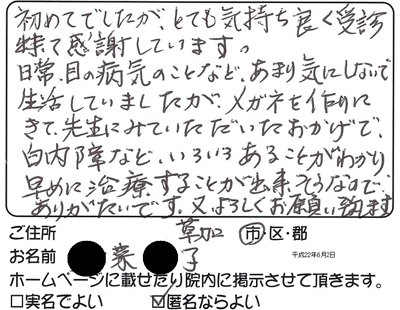 初めてでしたが、とても気持ち良く受診
来て感謝しています。
日常、目の病気のことなど、あまり気にしないで
生活していましたが、メガネを作りに
きて、先生にみていただいたおかげで、
白内障など、いろいろあることがわかり
早めに治療することが出来そうなので、
ありがたいです。又よろしくお願い致します
ご住所 草加 市・区・郡
お名前 子 平成22年6月2日
ホームページに載せたり院内に掲示させて頂きます。
□実名でよい ☑匿名ならよい